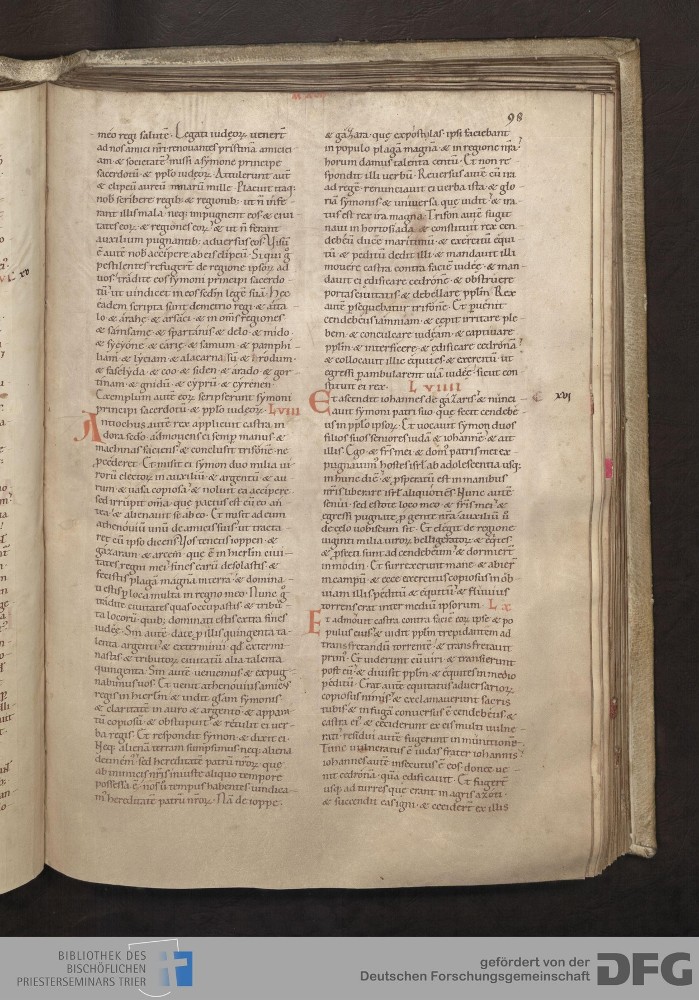 98
meo regi salutē. Legati iudeoꝝ venerт̄
ad nos amici nr̄i renovantes pristinā amicici
am & societatē missi a symone principe
sacerdotū & pplo iudeoꝝ. Attulerunt autē
& clipeū aureū mnarū mille. Placuit itaq;
nob scribere regib; & regionib; ut n̄ infe
rant illis mala neq; inpugnent eos & civi
tates eoꝝ & regiones eoꝝ & ut n̄ ferant
auxilium pugnantib; adversus eos. Visū
ē autē nob accipere ab eis clipeū. Si qui g̊
pestilentes refugerт̄ de regione ipsoꝝ ad
vos tradite eos symoni principi sacerdo
tū ut vindicet in eos scdm̄ legē suā. Hec
eadem scripta sunt demetrio regi & atta
lo & arabe & arsaci & in om̄s regiones
& samsame & spartanis & delo & mido
& sycyone & carie & samum & pamphi
liam & lyciam & alacarnasū & rodum
& faselyda & coo & siden & arado & gor
tinam & gnidū & cyprū & cyrenen
Exemplum autē eoꝝ scripserunt symoni
principi sacerdotū & pplo iudeoꝝ. LVIII
Antiochus autē rex applicuit castra in
dora sc̄do admovens ei semp manus &
machinas faciens & conclusit trifonē ne
pcederet. Et misit ei symon duo milia vi
rorū electoꝝ in auxiliū & argentū & au
rum & vasa copiosa & noluit ea accipere
sed irrupit om̄a que pactus est cū eo an
tea & alienavit se ab eo. Et misit ad eum
athenoviū unū de amicis suis ut tracta
ret cū ipso dicens. Vos tenetis ioppen &
gazaram & arcem que ē in hierl̄m civi
tates regni mei fines earū desolastis &
fecistis plagā magnā in terra & domina
ti estis p loca multa in regno meo. Nunc g̊
tradite civitates quas occupastis & tribu
ta locorū quib; dominati estis extra fines
iudeę. Sin autē date p illis quingenta ta
lenta argenti & exterminii qd extermi
nastis & tributoꝝ civitatū alia talenta
quingenta. Sin autē veniemus & expug
nabimus vos. Et venit athenovius amicꝰ
regis in hierl̄m & vidit gl̄am symonis
& claritatē in auro & argento & appara
tū copiosū & obstupuit & retulit ei ver
ba regis. Et respondit symon & dixit ei.
Neq; alienā terram sumpsimus neq; aliena
detinem̄ sed hereditatē patrū nr̄oꝝ que
ab inimicis nr̄is iniuste aliquo tempore
possessa ē. nos ū tempus habentes vindica
m̄ hereditatē patrū nr̄oꝝ. Nā de ioppe
& gazara que expostulas ipsi faciebant
in populo plagā magnā & in regione nr̄a
horum damus talenta centū. Et non re
spondit illi verbū. Reversus autē cū ira
ad regē renunciavit ei verba ista & glo
riā symonis & universa que vidit & ira
tus est rex ira magna. Trifon autē fugit
navi in hortosiada & constituit rex cen
debeū ducē maritimū & exercitū equi
tū & peditū dedit illi & mandavit illi
movere castra contra faciē iudeę & man
davit ei edificare cedronē & obstruere
portas civitatis & debellare pplm̄. Rex
autē psequebatur trifonē. Et puenit
cendebeus iamniam & cepit irritare ple
bem & conculcare iudęam & captivare
pplm̄ & interficere & edificare cedronā
& collocavit illic equites & exercitū ut
egressi pambularent viā iudeę sicut con
stituit ei rex. LVIIII
Et ascendit iohannes de gazaris & nunci
avit symoni patri suo que fecit cendebe
us in pplo ipsoꝝ. Et vocavit symon duos
filios suos seniores iudā & iohannē & ait
illis. Ego & fr̄s mei & dom̄ patris mei ex
pugnavim̄ hostes isrl̄ ab adolescentia usq;
in hunc diē & psperatū est in manibus
nr̄is liberare isrl̄ aliquotiens. Nunc autē
senui sed estote loco meo & fr̄s mei &
egressi pugnate p gente nr̄a auxiliū ū
de cęlo vobiscum sit. Et elegit de regione
viginti milia viroꝝ belligeratoꝝ & eqites
& pfecti sunt ad cendebeum & dormierт̄
in modin. Et surrexerunt mane & abierт̄
in campū & ecce exercitus copiosus in ob
viam illis peditū & equitū & fluvius
torrens erat inter mediū ipsorum. LX
Et admovit castra contra faciē eoꝝ ipse & po
pulus eius & vidit pplm̄ trepidantem ad
transfretandū torrentē & transfretavit
prim̄. Et viderunt eū viri & transierunt
post eū & divisit pplm̄ & equites in medio
peditū. Erat autē equitatus adversarioꝝ
copiosus nimis & exclamaverunt sacris
tubis & in fugā conversus ē cendebeus &
castra ei & ceciderunt ex eis multi vulne
rati residui autē fugerunt in munitionē.
Tunc vulneratus ē iudas frater iohannis
iohannes autē insecutus ē eos donec ve
nit cedronā quā edificavit. Et fugerт̄
usq; ad turres que erant in agris azoti
& succendit eas igni & ceciderт̄ ex illis
XVI
XV
BIBLIOTHEK DES
BISCHÖFLICHEN
PRIESTERSEMINARS TRIER
gefördert von der
Deutschen Forschungsgemeinschaft
DFG